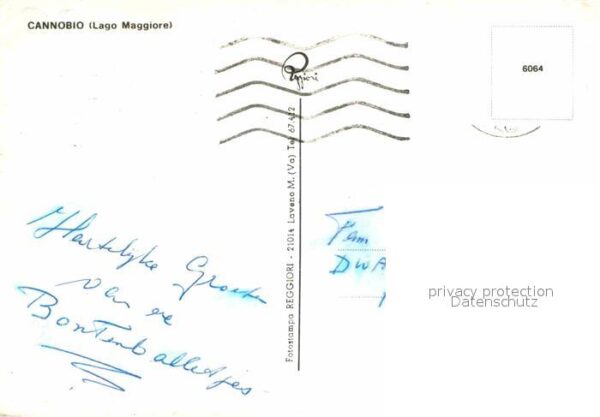 CANNOBIO (Lago Maggiore)
Reggiori
6064
Fotostampa REGGIORI - 21014 Laveno M. (Va) Tel. 67.412
Hartelijke Groeten
van de
Bontenballetjes
Fam
DWA
privacy protection
Datenschutz